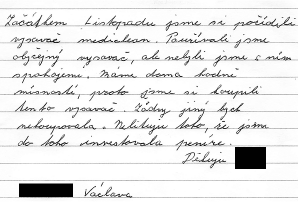 Začátkem Listopadu jsme si pořídili
vysavač mediclean. Používali jsme
obyčejný vysavač, ale nebyli jsme s ním
spokojeni. Máme doma hodně
místností, proto jsme si koupili
tento vysavač. Žádný jiný bych
nekupovala. Nelituju toho, že jsem
do toho investovala peníze.
Děkuju
Václava